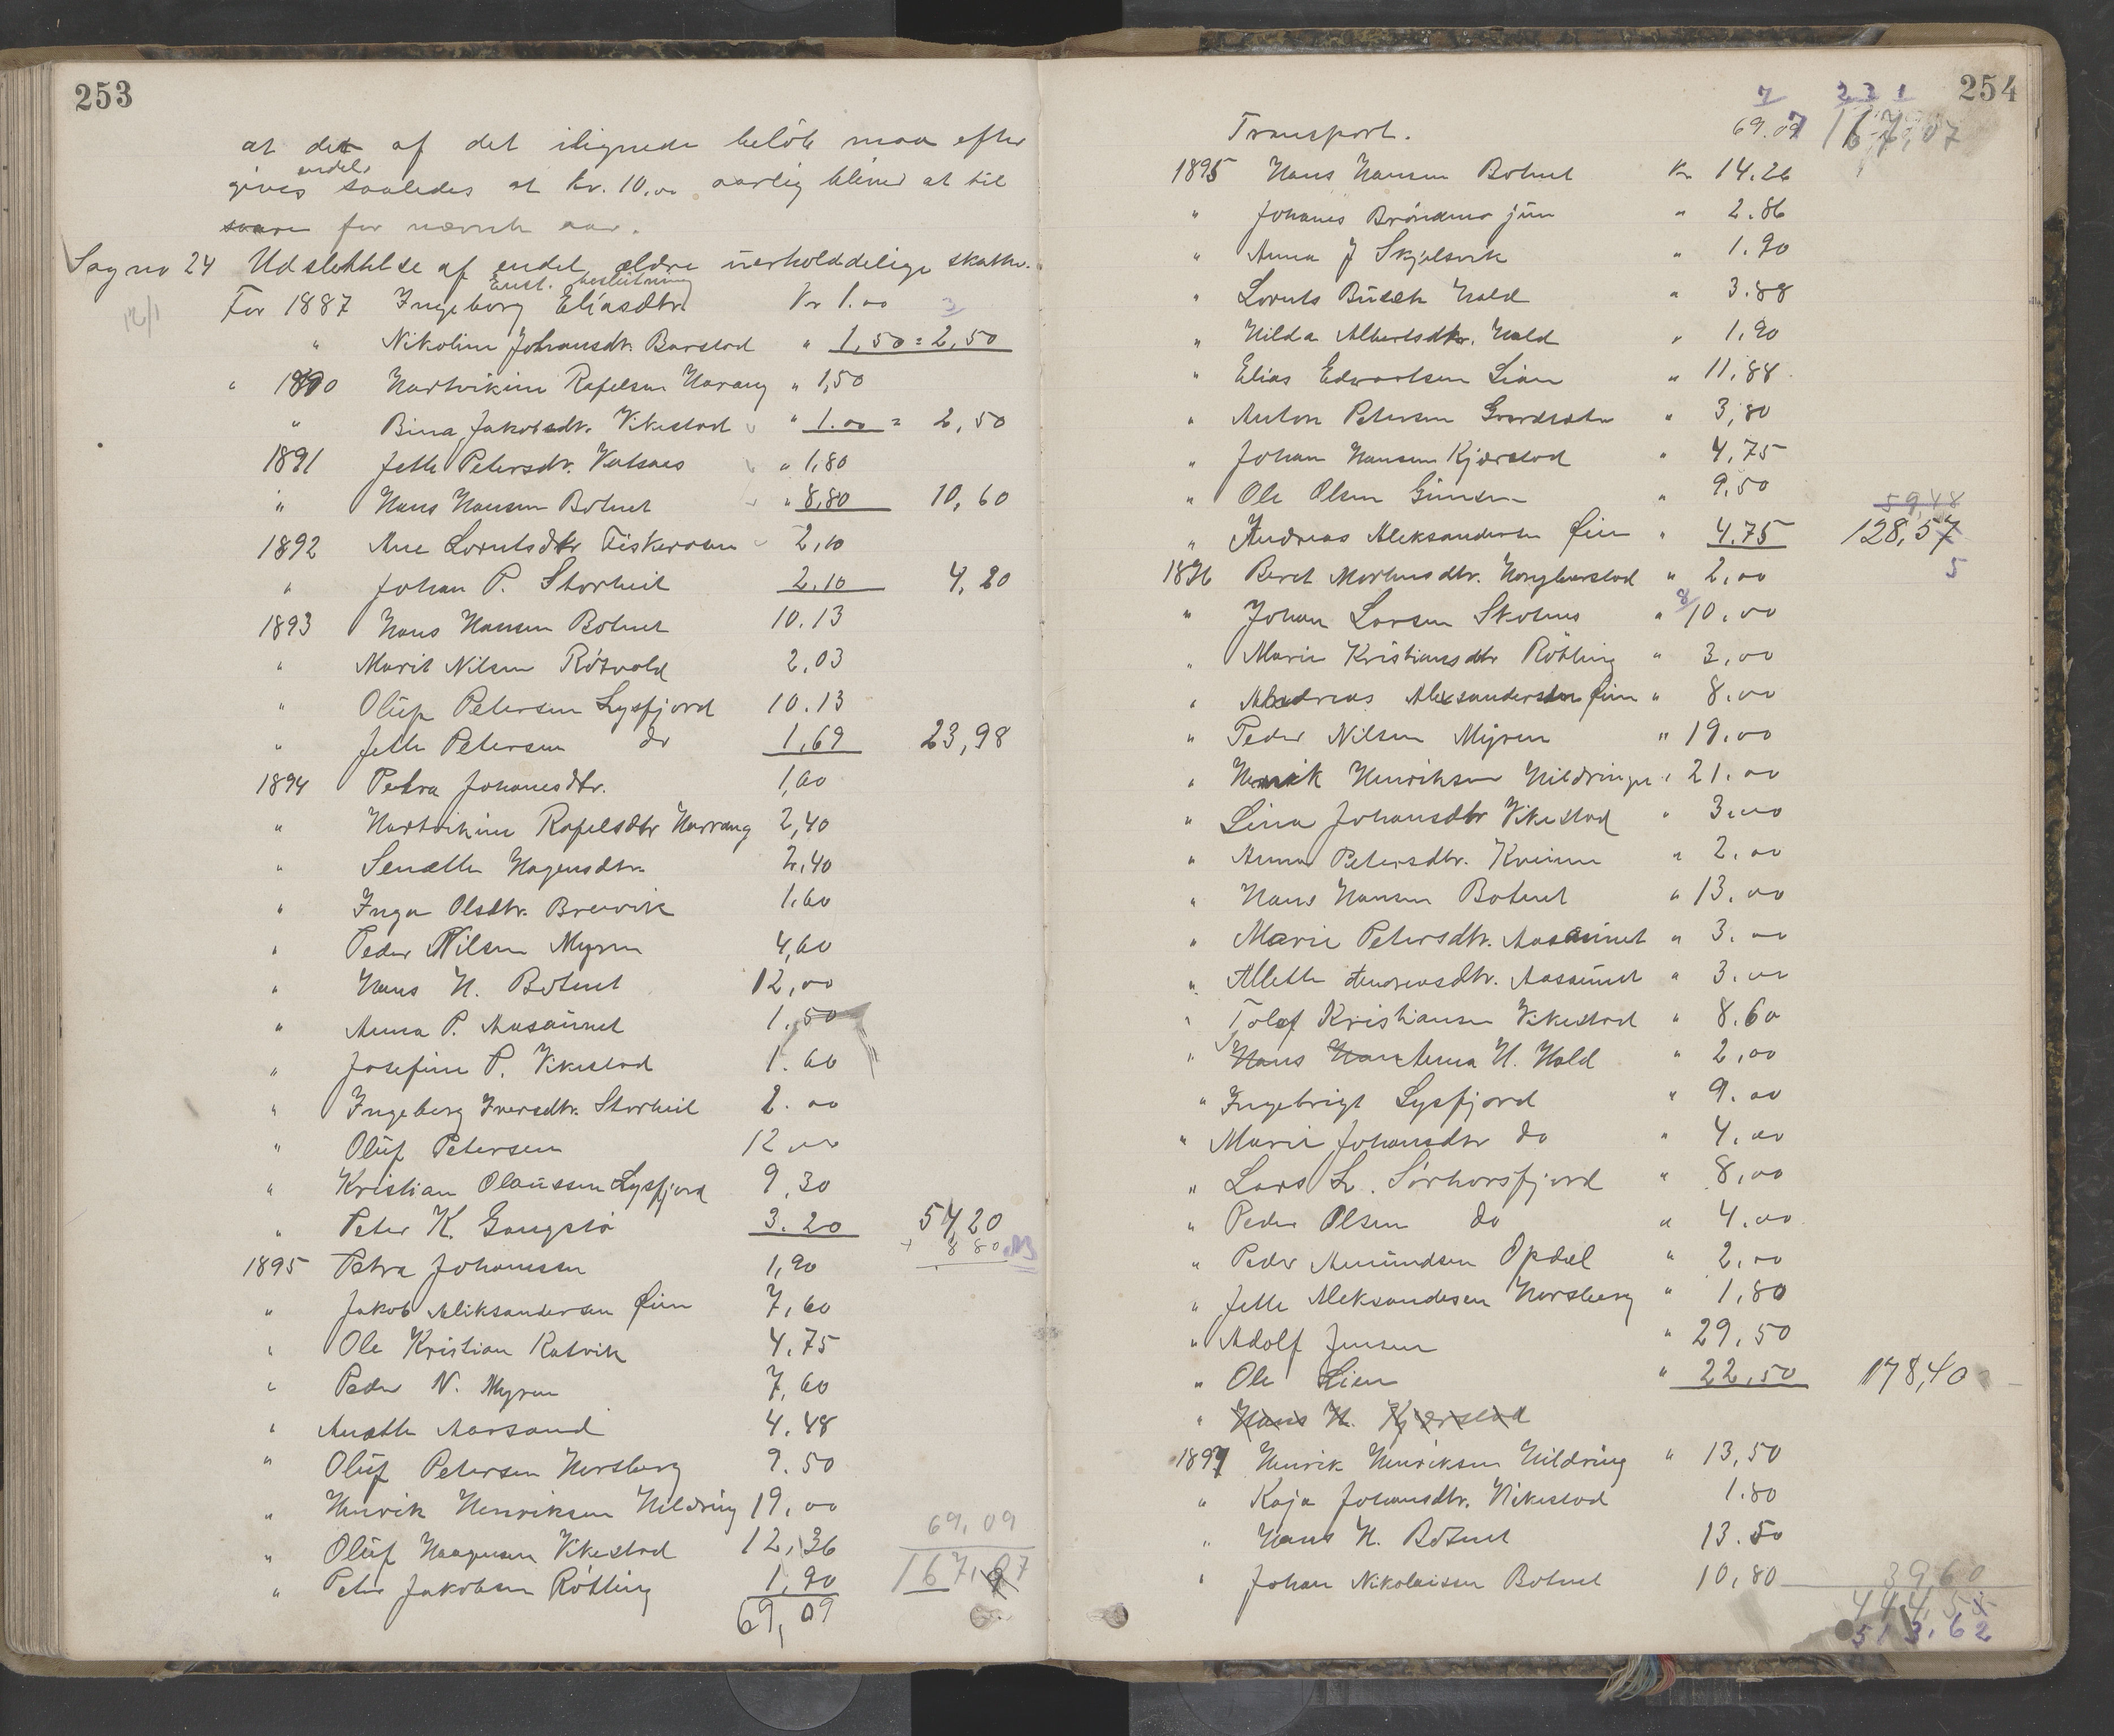 253
at det af det ilignede beløb maa efter
gives endel saaledes at kr. 10,00 aarlig bliver at til
svare for nævnte aar.
Sag no 24 Udslettelse af endel ældre uerholddelige skatter.
Enst. beslutning
12/1
For 1887 Ingeborg Eliasdtr. Kr 1.00
3
" Nikoline Johansdtr. Barstad " 1,50 = 2,50
" 1890 Hartvikine Rafelsen Harang " 1,50
" Bina Jakobsdtr. Vikestad " 1.00 = 2,50
1891 Jette Petersdtr. Vatsaas " 1,80
" Hans Hansen Botnet " 8,80 10,60
1892 Ane Lorntsdtr Fiskerosen 2,10
" Johan P. Storheil 2.10 4,20
1893 Hans Hansen Botnet 10.13
" Marit Nilsen Rótvold 2,03
" Oluf Petersen Lysfjord 10.13
" Jette Petersen do 1,69 23,98
1894 Petra Johanesdtr. 1,60
" Hartvikine Rafelsdtr Harrang 2,40
" Senette Hagensdtr. 2,40
" Inga Olsdtr. Breivik 1.60
" Peder Nilsen Myren 4,60
" Hans H. Botnet 12,00
" Anna P. Aasaunet 1,50
" Josefine P. Vikestad 1.60
" Ingeborg Iversdtr. Storheil 2.00
" Oluf Petersen 12 00
" Kristian Olaussen Lysfjord 9,30
" Peter K. Gangstø 3.20 54,20
+ 8 80
1895 Petra Johanessen 1,90
" Jakob Aliksandersen Fin 7,60
" Ole Kristian Katvik 4.75
" Peder N. Myren 7,60
" Anette Aarsand 4.48
" Oluf Petersen Horsberg 9.50
" Henrik Henriksen Hildring 19,00
69,09
" Oluf Haagensen Vikestad 12,36
" Peter Jakobsen Rötting 1,90 167,07
69,09
254
7 231
Transport. 69.07 167,07
1895 Hans Hansen Botnet Kr 14.26
" Johanes Bröndmo jun " 2.86
" Anna J Skjelsvik " 1.90
" Lornts Busch Hald " 3.88
" Hilda Albertsdtr. Hald " 1,90
" Elias Edvartsen Lian " 11,88
" Anton Petersen Grordsæter " 3,80
" Johan Hansen Kjærstad " 4,75
" Ole Olsen Gimsen " 9,50
59,48
" Andreas Aleksandersen Fin " 4.75 128,57
5
1896 Beret Mortensdtr. Hongbarstad " 2,00
8
" Johan Larsen Skotnes " 10.00
" Marie Kristiansdtr Rötting " 3,00
" Andreas Alexsandersen Fin " 8.00
" Peder Nilsen Myren " 19.00
" Henrik Henriksen Hildringen " 21.00
" Lina Johansdtr Vikestad " 3.00
" Anna Petersdtr. Kveinen " 2.00
" Hans Hansen Botnet " 13.00
" Marie Petersdtr. Aasaunet " 3.00
" Alette Andreasdtr. Aasaunet " 3.00
" Tolof Kristiansen Vikestad " 8.60
" Hans Han Anna H. Hald " 2,00
" Ingebrigt Lysfjord " 9.00
" Marie Johansdtr do " 4.00
" Lars L. Sörhorsfjord " 8,00
" Peder Olsen do " 4.00
" Peder Amundsen Opdal " 2,00
" Jette Aleksandesen Horsberg " 1,80
" Adolf Jensen " 29,50
" Ole Lien " 22,50 178,40
" Hans H. Kjærstad
1897 Henrik Henriksen Hildring " 13,50
" Kaja Johansdtr. Vikestad 1.80
" Hans H. Botnet 13.50
" Johan Nikolaisen Botnet 10,80 39,60
444,55
513.62